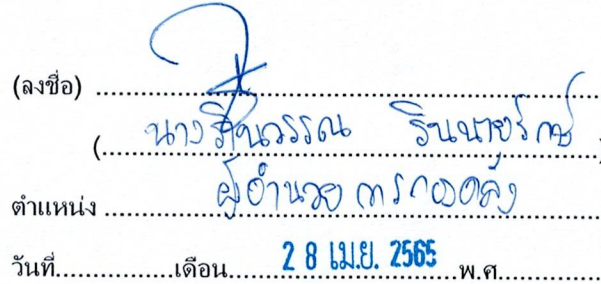 (ลงชื่อ)
(นางรัตนวรรณ รินนายรักษ์)
ตำแหน่ง ผู้อำนวยการกองคลัง
วันที่ เดือน 28 เม.ย. 2565 พ.ศ.